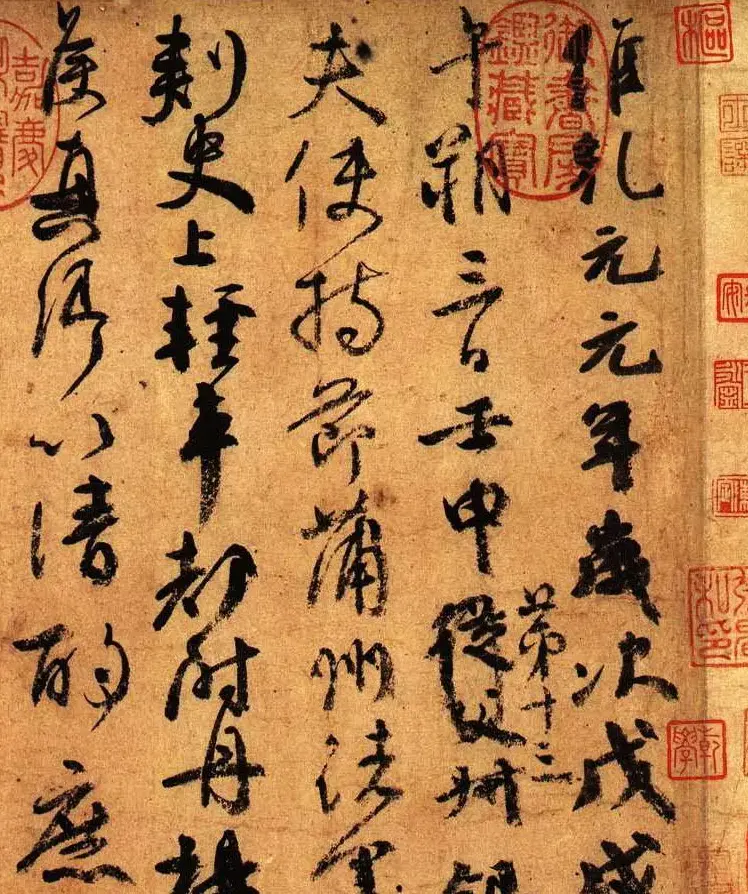 維乾元元年歲次戊戌
午朔三日壬申從父叔銀
第十三
夫使持節蒲州諸軍
刺史上輕車都尉丹楊
侯真卿以清酌庶
御書房鑑藏寶
嘉慶